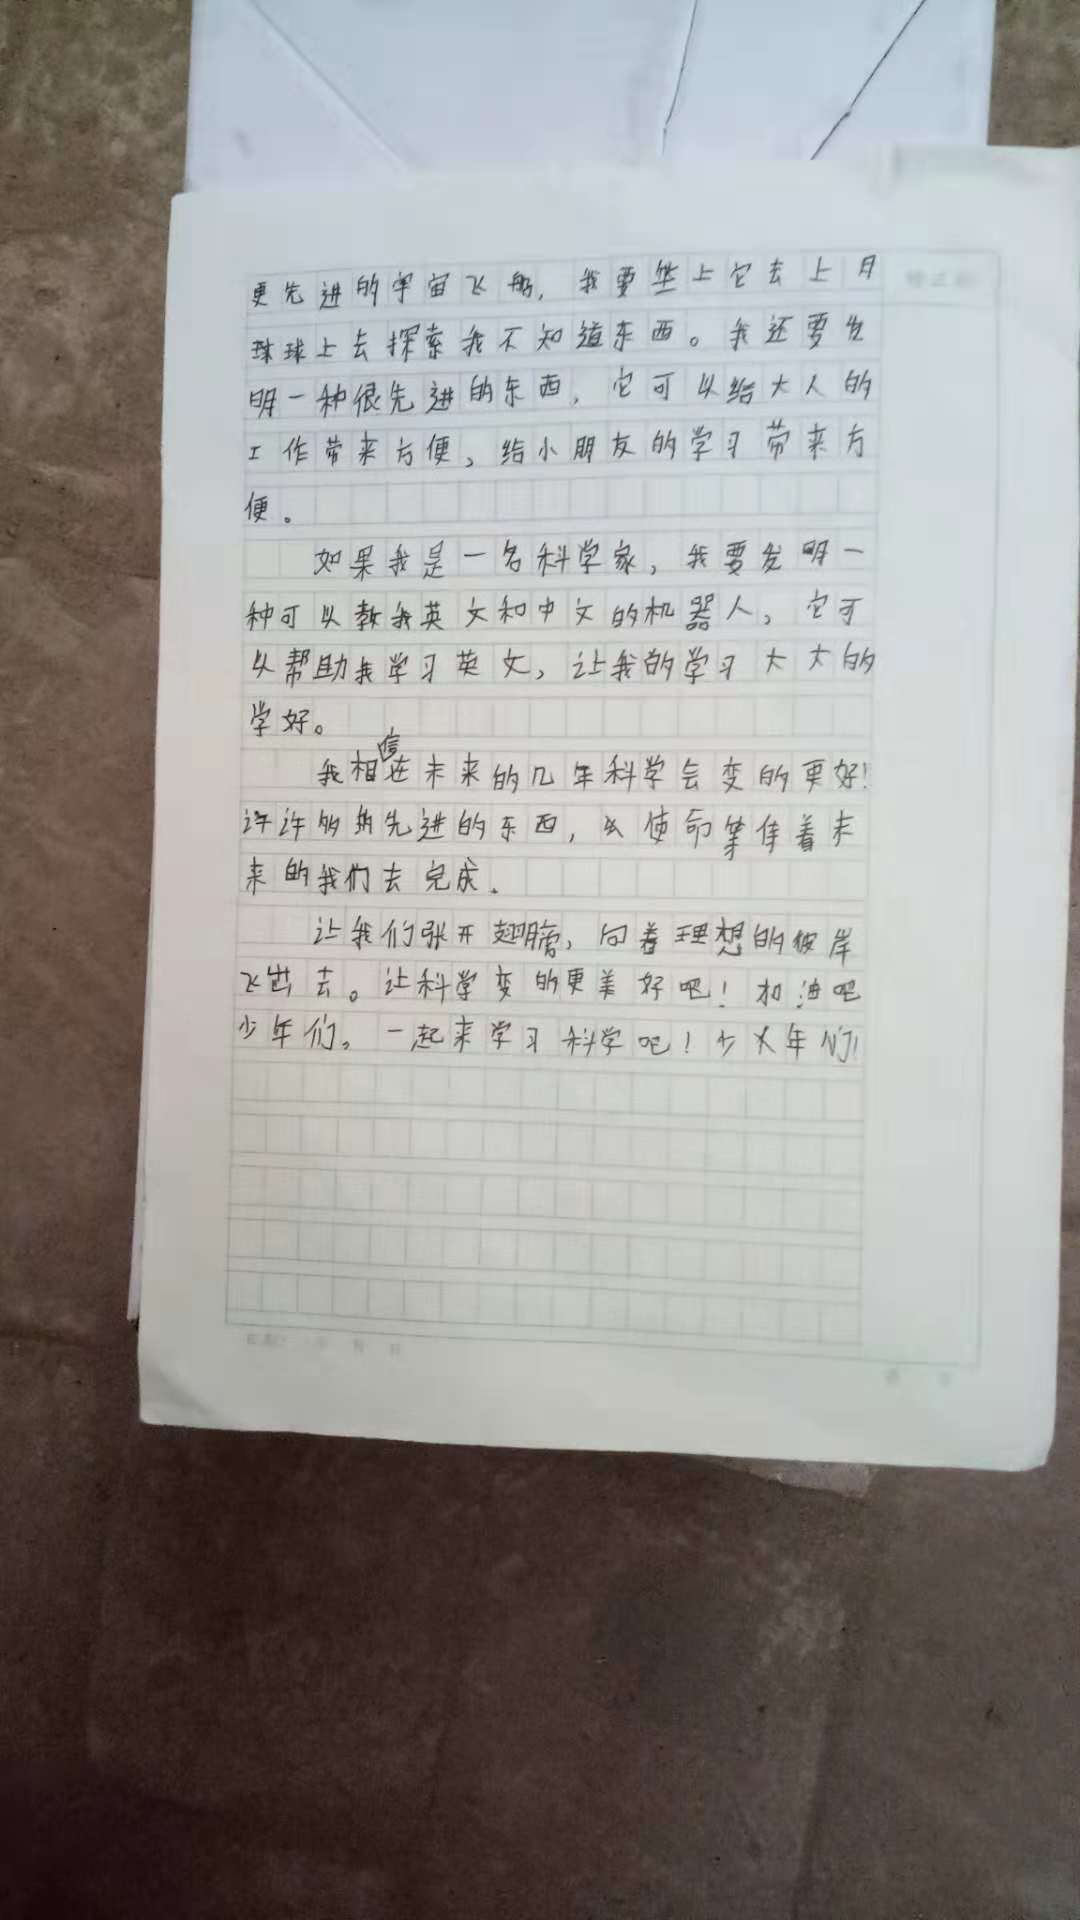 更先进的宇宙飞船，我要坐上它去上月
球球上去探索我不知道东西。我还要发
明一种很先进的东西，它可以给大人的
工作带来方便，给小朋友的学习带来方
便。
如果我是一名科学家，我要发明一
种可以教我英文和中文的机器人，它可
以帮助我学习英文，让我的学习大大的
学好。
我相信在未来的几年科学会变的更好！
许许多多先进的东西，使命等待着未
来的我们去完成.
让我们张开翅膀，向着理想的彼岸
飞出去。让科学变的更美好吧！加油吧
少年们。一起来学习科学吧！少年们！